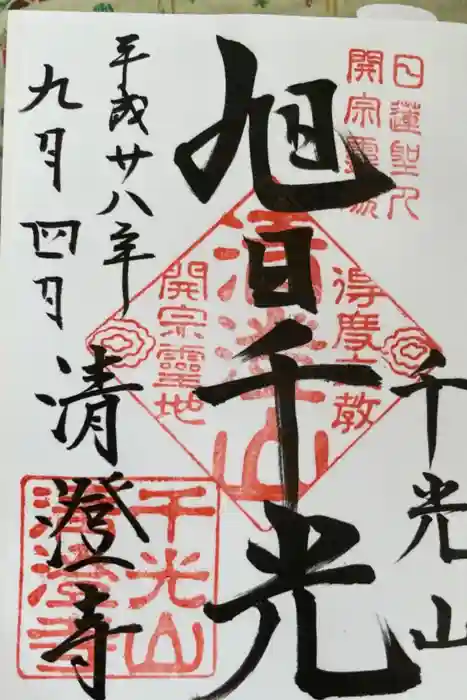 千光山
旭日千光
平成廿八年
九月四日
清澄寺
日蓮聖人
開宗霊場
得度立教
清澄山
開宗靈地
千光山
清澄寺